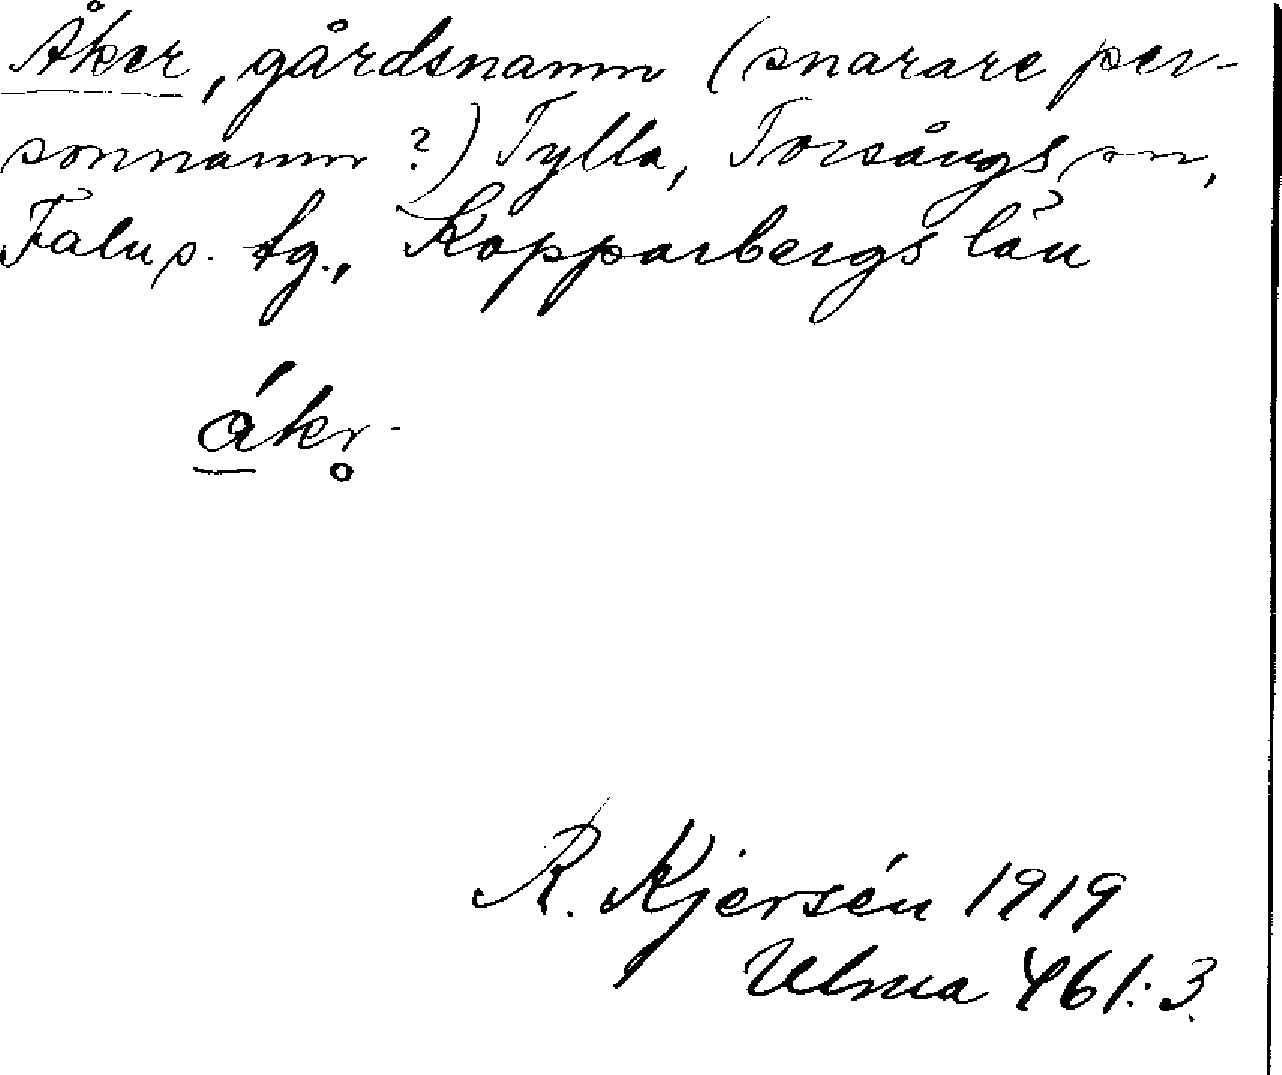 Åker, gårdsnamn (snarare per-
sonnamn ?) Tylla, Torsångs sn,
Falu s. tg., Kopparbergs län
ákr̥
R. Kjersén 1919
Ulma 461:3.